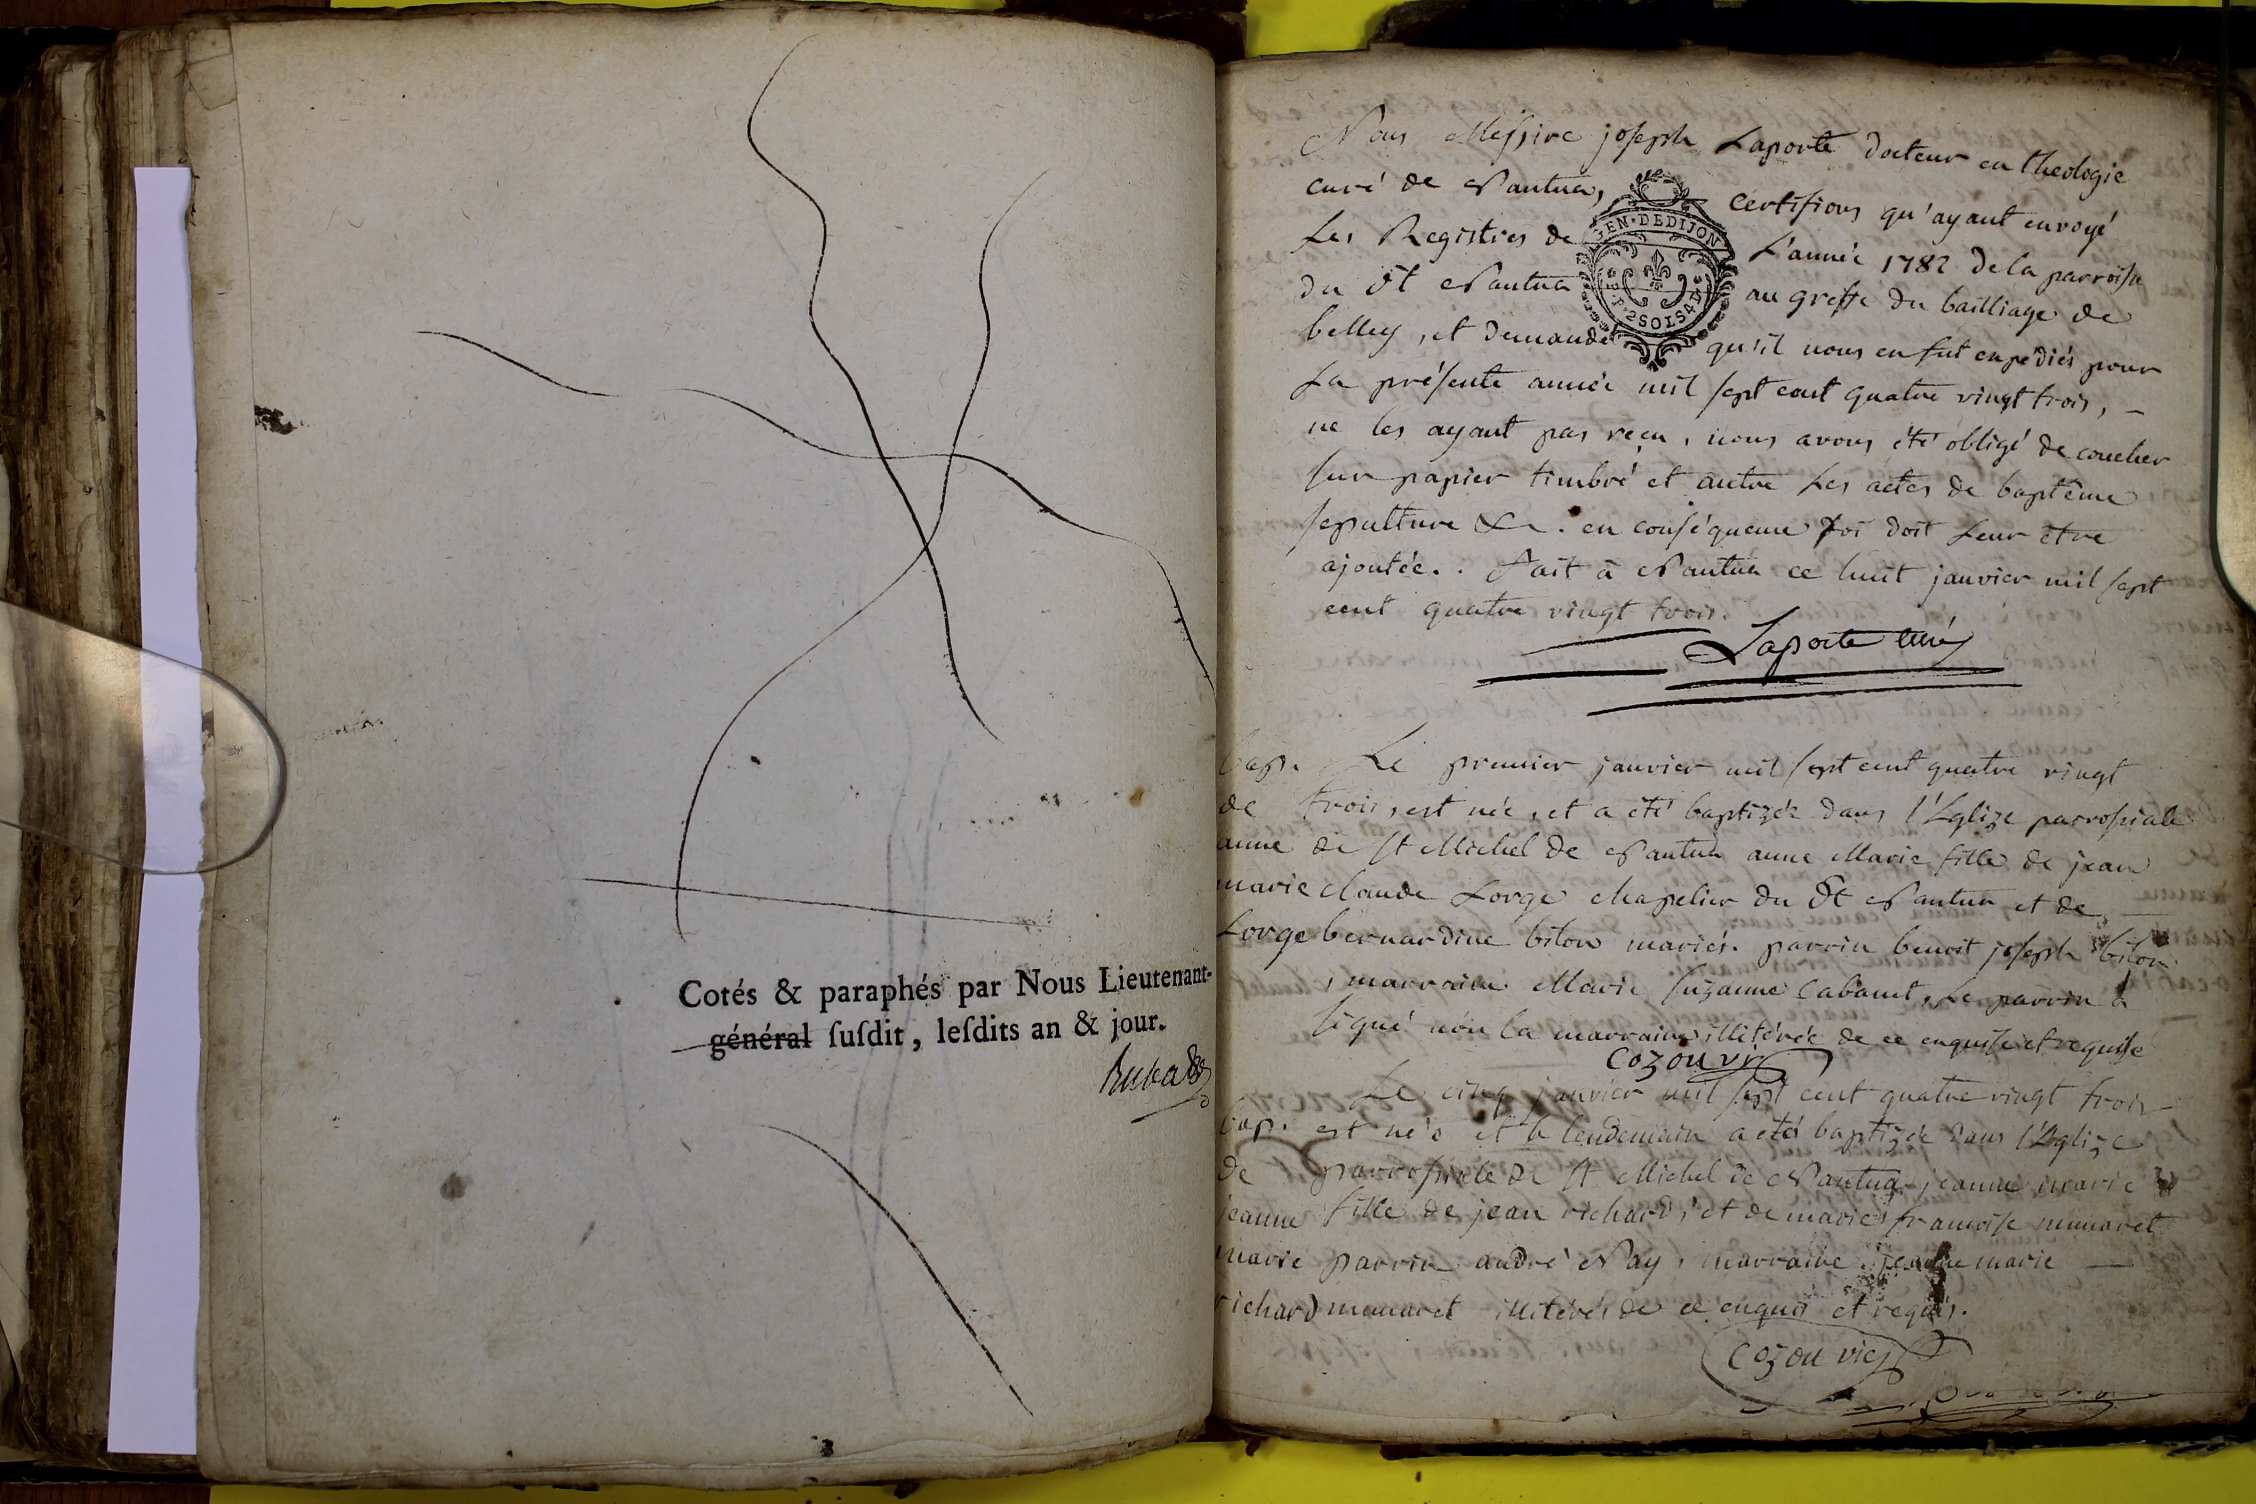 Cotés & paraphés par Nous Lieutenant-
général ſuſdit, leſdits an & jour.
Nous Messire joseph Laporte docteur en theologie
curé de Nantua, certifions qu'ayant envoyé
Les Registres de L'année 1782 de la parroisse
du dt Nantua au greffe du bailliage de
belley, et demandé qu'il nous en fut expédiés pour
La présente année mil sept cent quatre vingt trois,
ne les ayant pas reçu, nous avons été obligé de coucher
sur papier timbré et autre Les actes de baptême
sepulture &c. en conséquence foi doit Leur être
ajoutée. Fait à Nantua ce huit janvier mil sept
cent quatre vingt trois.
Laporte curé
GEN·DEDIJON
2SOLS4D
bap. Le premier janvier mil sept cent quatre vingt
de trois, est née, et a été baptizée dans l'Eglize parrossiale
anne de St Michel de Nantua anne Marie fille de jean
marie claude Lorge chapelier du dt Nantua et de
Lorge bernardine bilon mariés. parrin benoit joseph bilon
, marraine Marie suzanne Cabanet, Le parrin a
signé non la marraine illitérée de ce enquise et requise
cozon vic
Le cinq janvier mil sept cent quatre vingt trois
bap. est née et le lendemain a été baptizée dans l'Eglize
de parrossiale de St Michel de Nantua jeanne marie
jeanne fille de jean richard, et de marie francoise munaret
marie parrin andré Nay, marraine jeanne marie
richard munaret illitérés de ce enquis et requis.
cozon vic